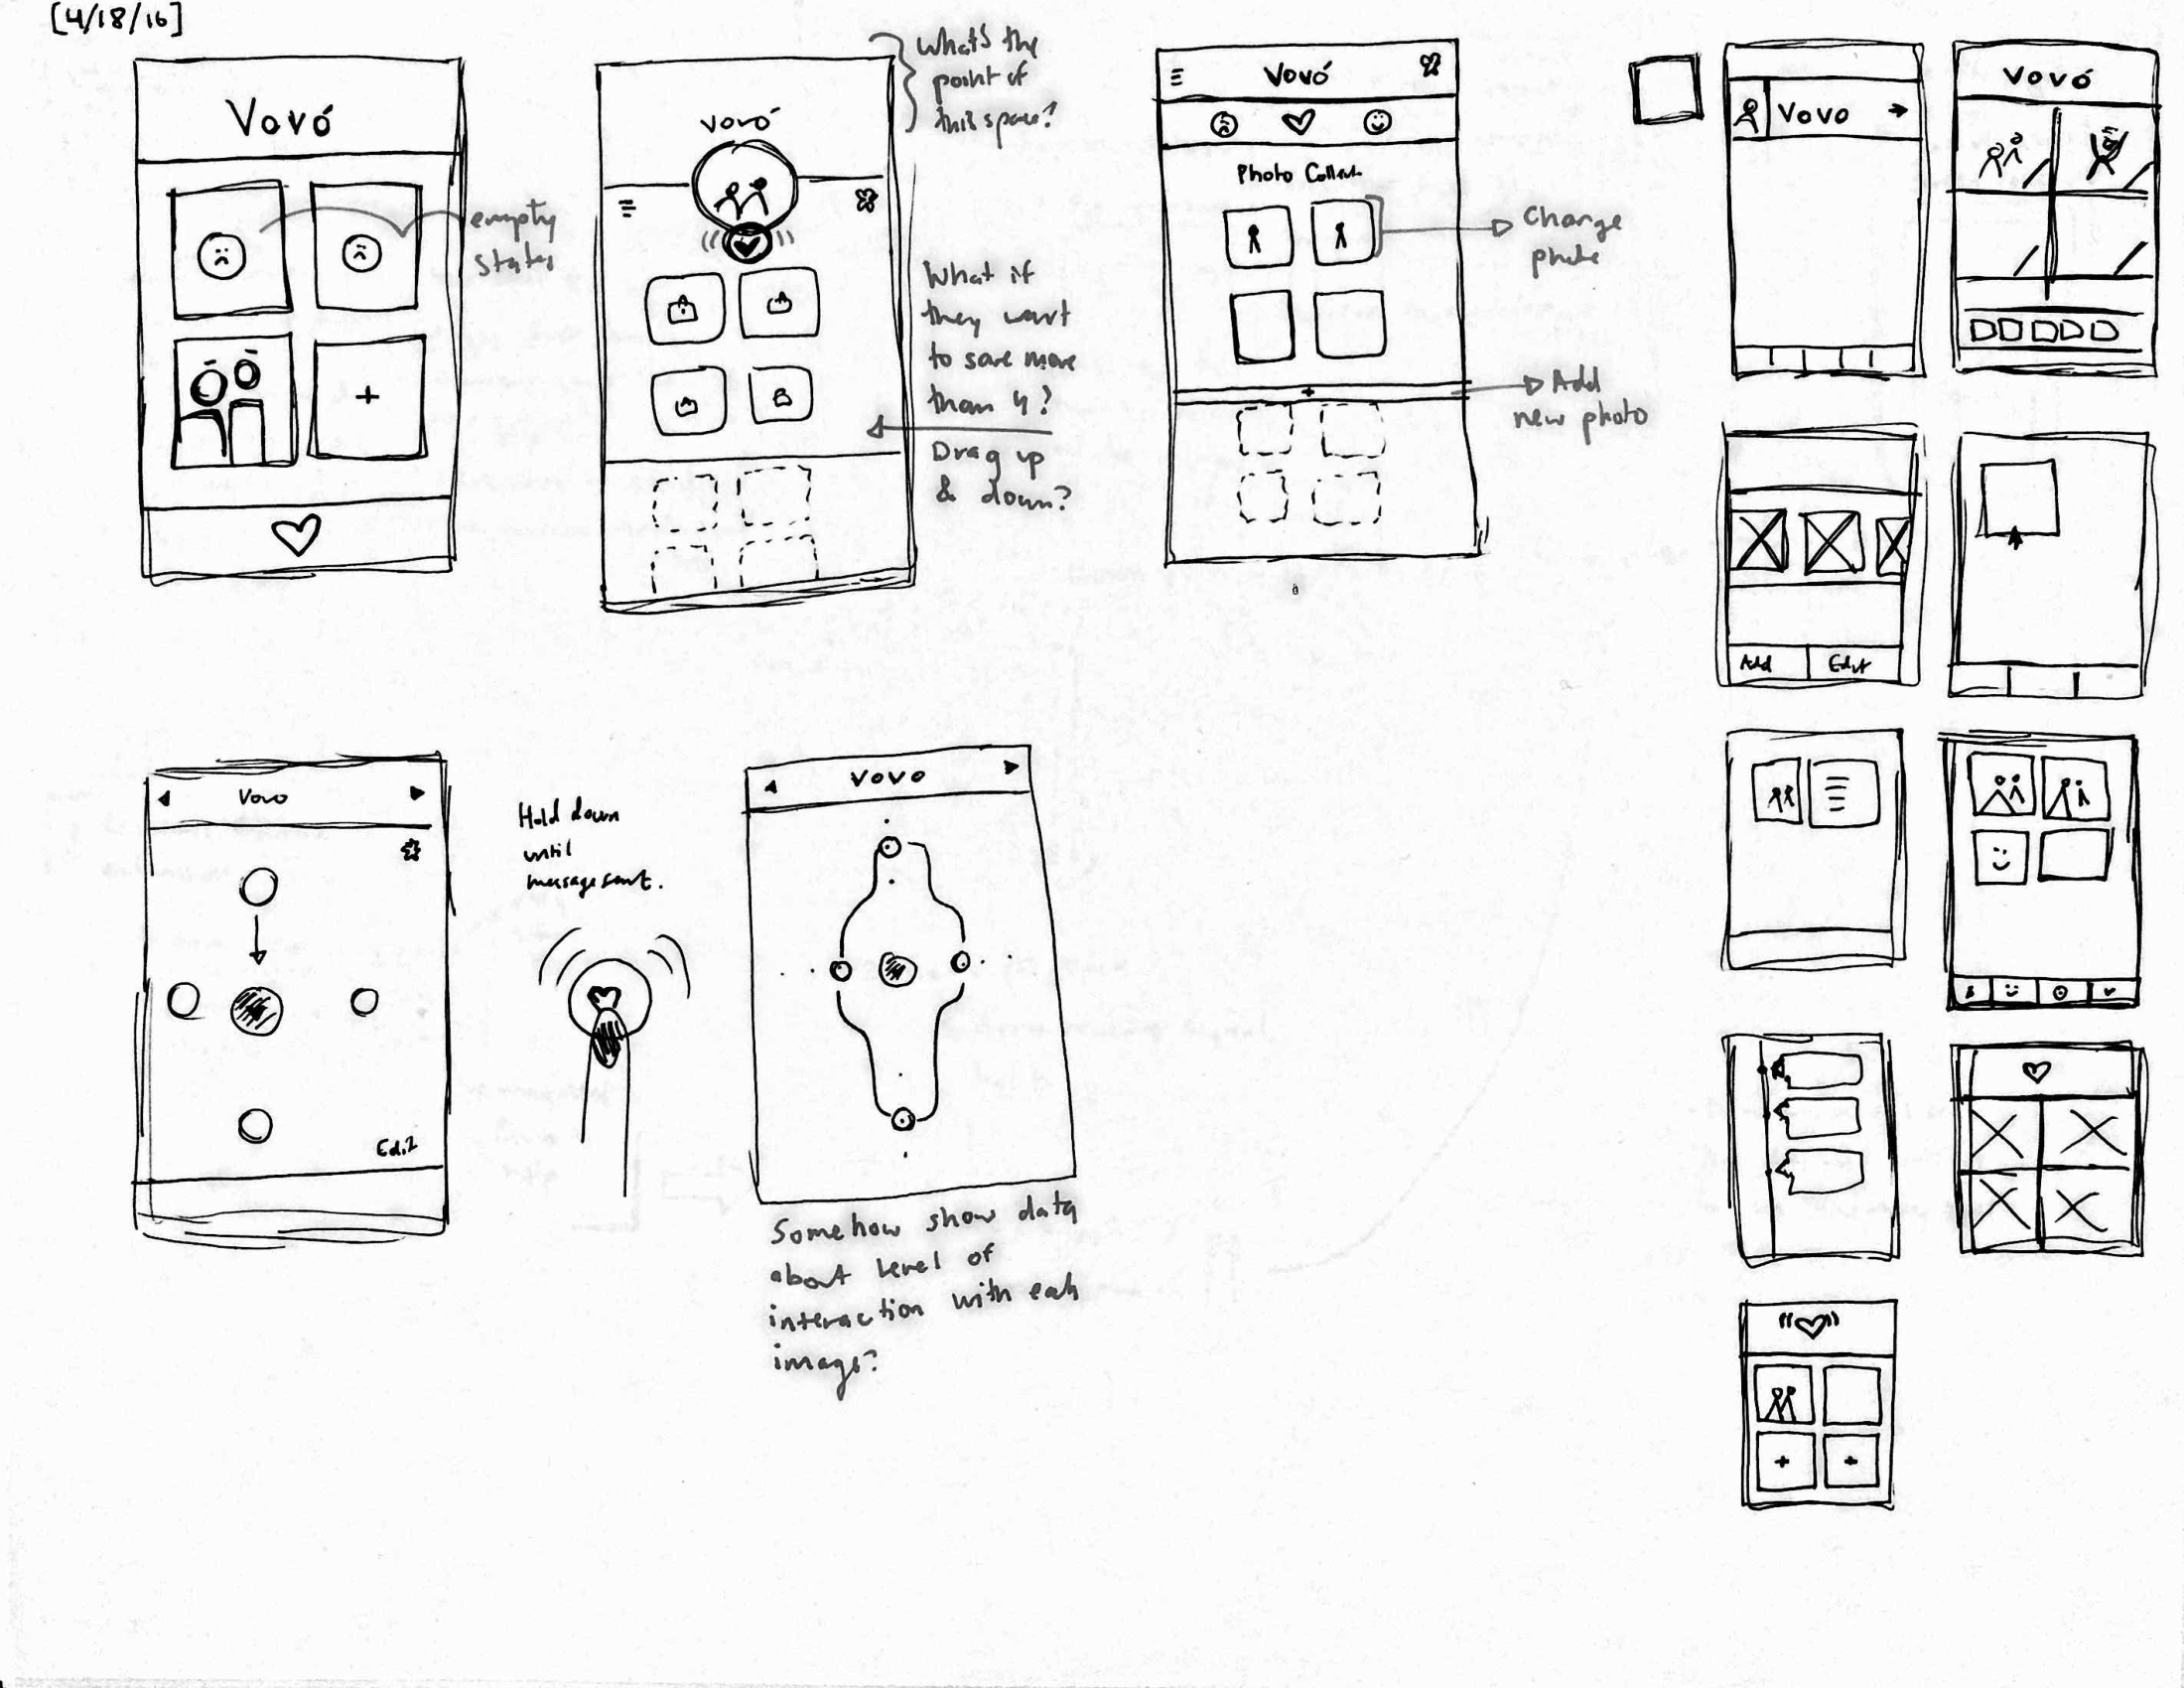 [4/18/16]
Vovó
empty
states
vovó
What's the
point of
this space?
What if
they want
to save more
than 4?
Drag up
& down?
Vovó
Photo Collect
Change
photo
Add
new photo
Vovo
Vovó
Add
Edit
Vovo
Edit
Hold down
until
message sent.
Vovo
Somehow show data
about level of
interaction with each
image?